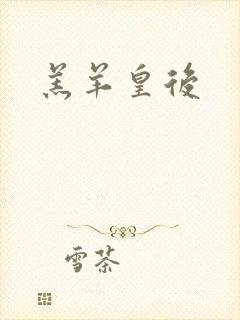 羔羊皇後
雪茶